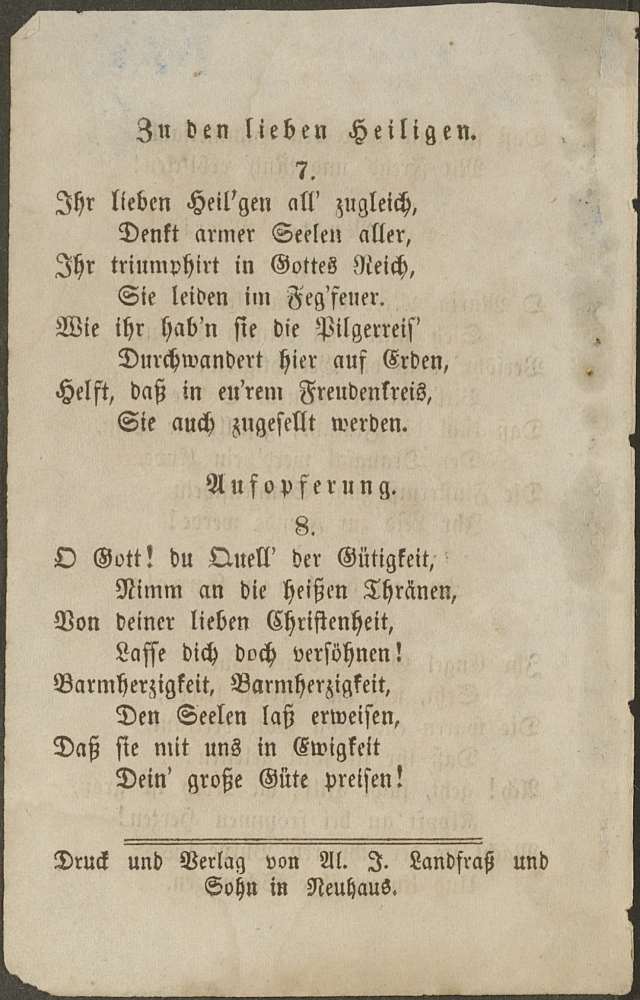 Zu den lieben Heiligen.
7.
Ihr lieben Heil'gen all' zugleich,
Denkt armer Seelen aller,
Ihr triumphirt in Gottes Reich,
Sie leiden im Feg'feuer.
Wie ihr hab'n sie die Pilgerreis'
Durchwandert hier auf Erden,
Helft, daß in eu'rem Freudenkreis,
Sie auch zugesellt werden.
Aufopferung.
8.
O Gott! du Quell' der Gütigkeit,
Nimm an die heißen Thränen,
Von deiner lieben Christenheit,
Lasse dich doch versöhnen!
Barmherzigkeit, Barmherzigkeit,
Den Seelen laß erweisen,
Daß sie mit uns in Ewigkeit
Dein' große Güte preisen!
Druck und Verlag von Al. J. Landfraß und
Sohn in Neuhaus.